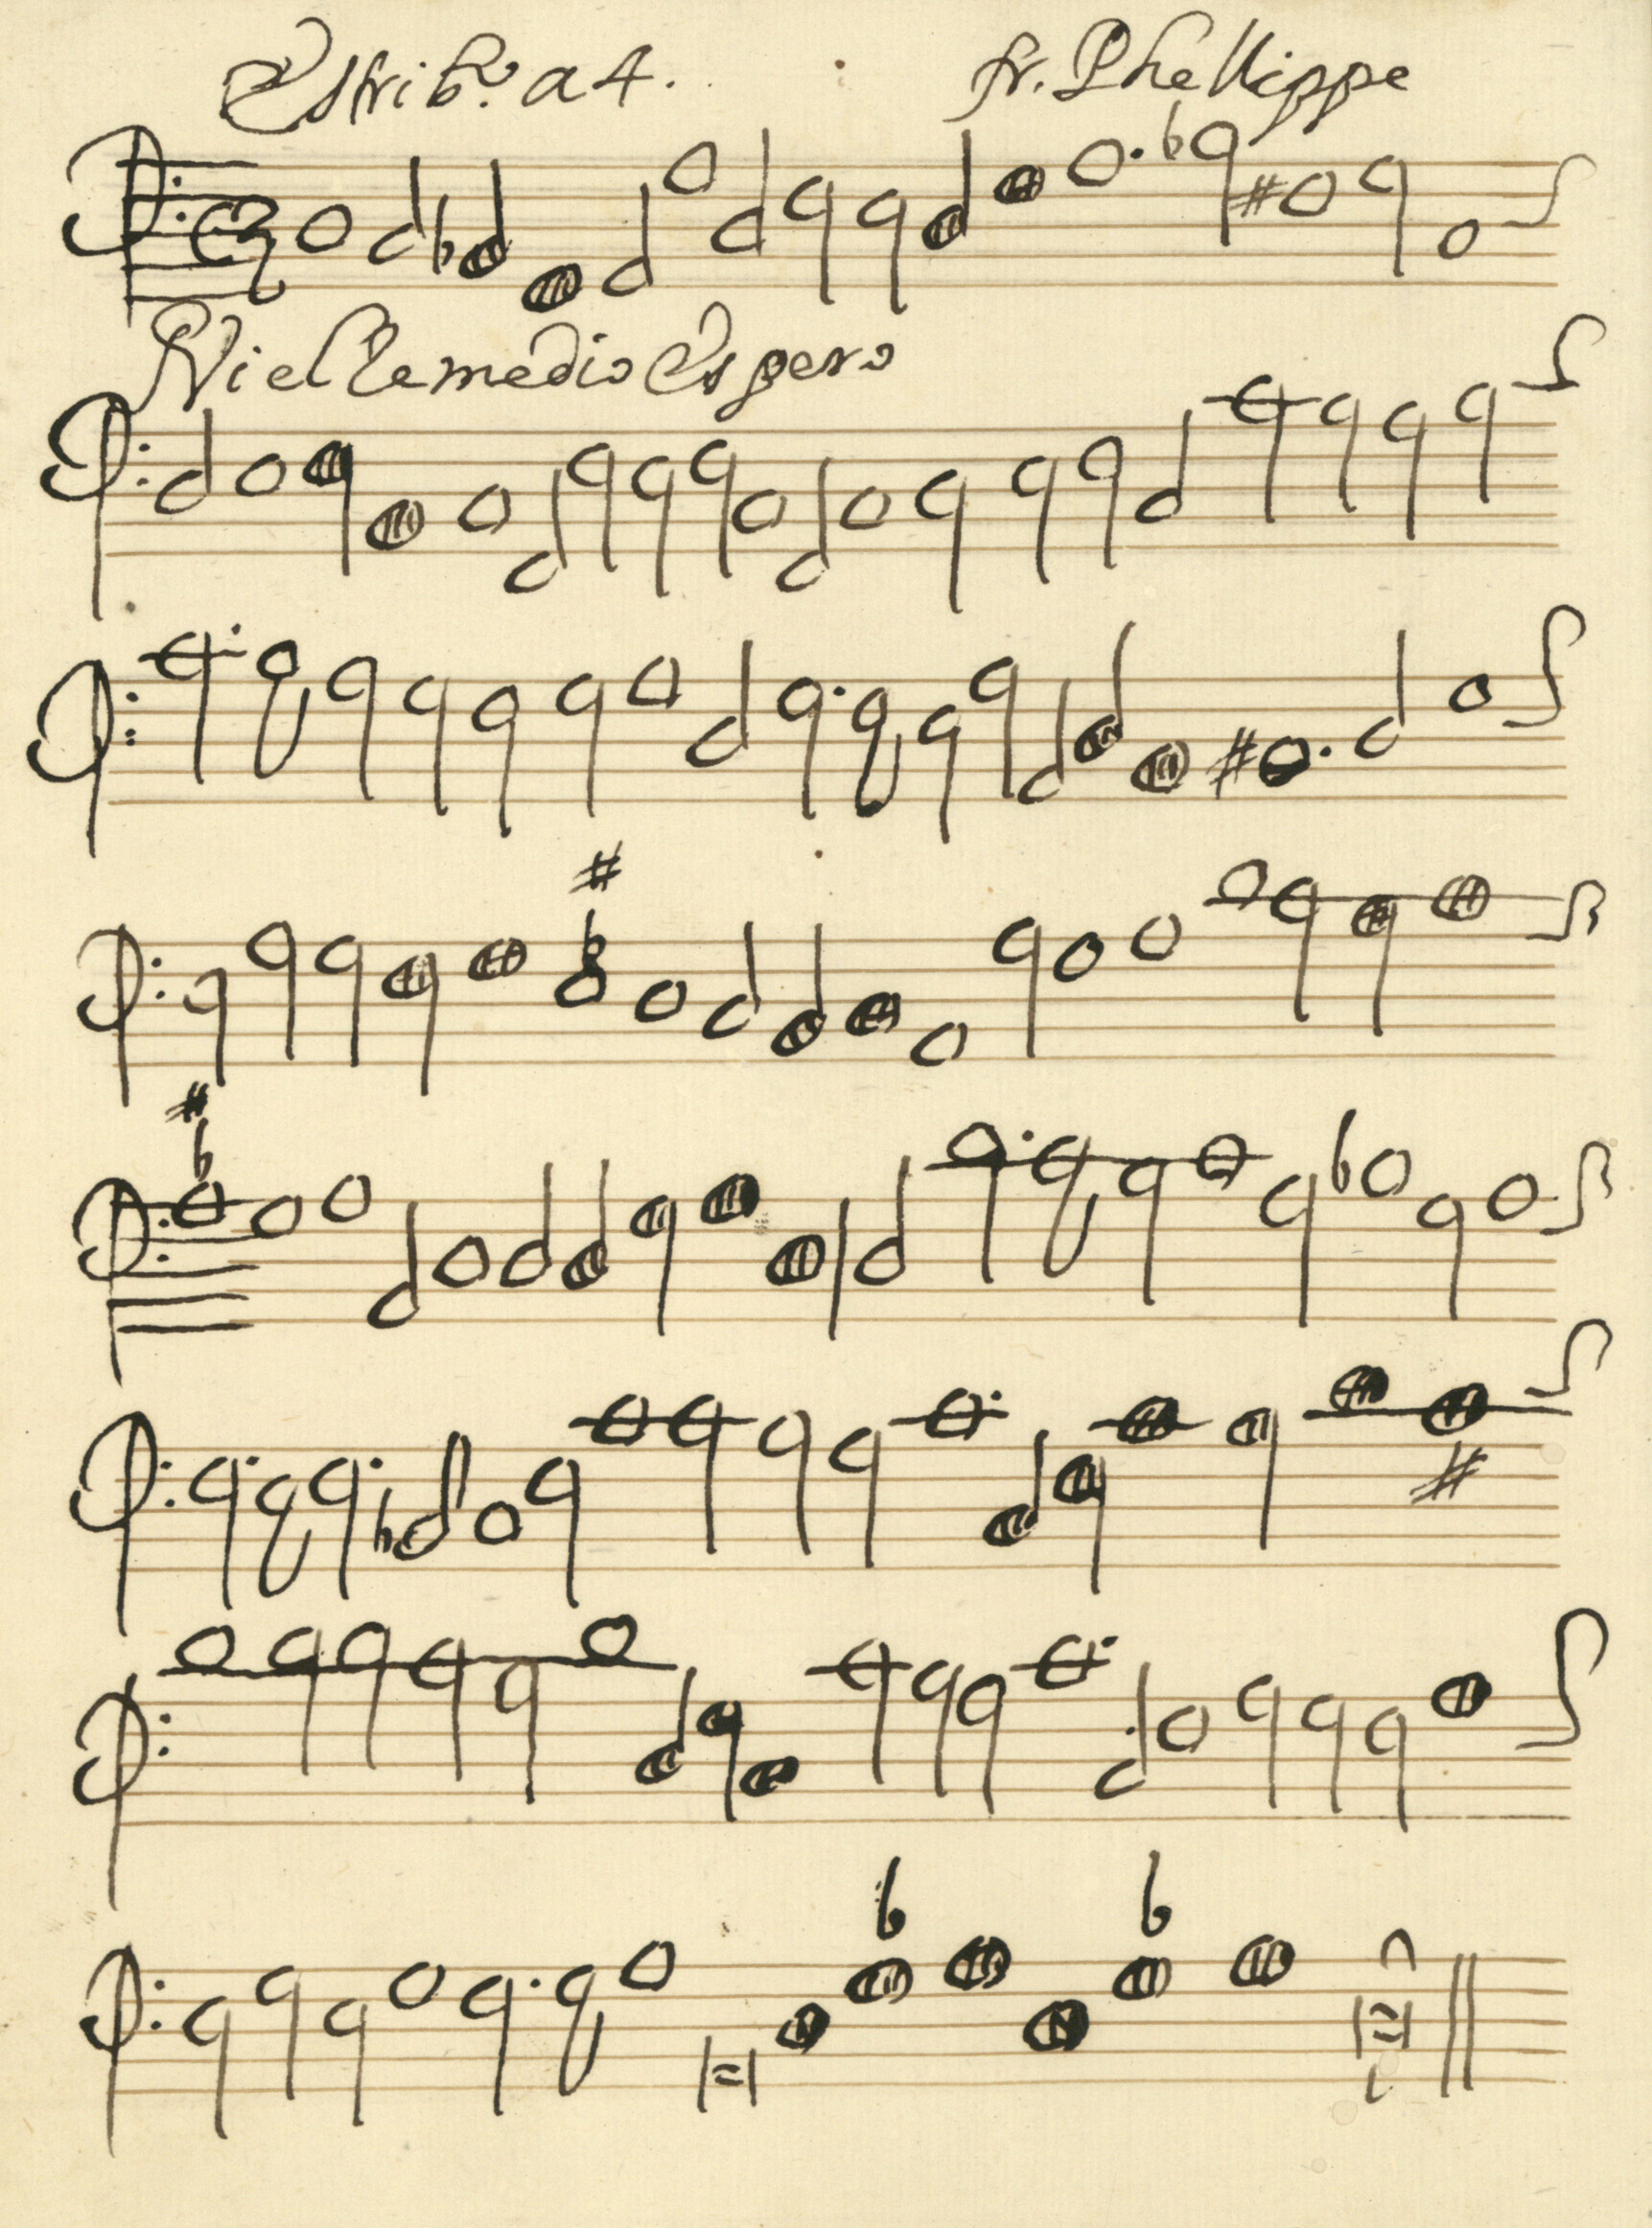 Estribº. a 4. fr. Phelippe
Ni el Remedio Espero